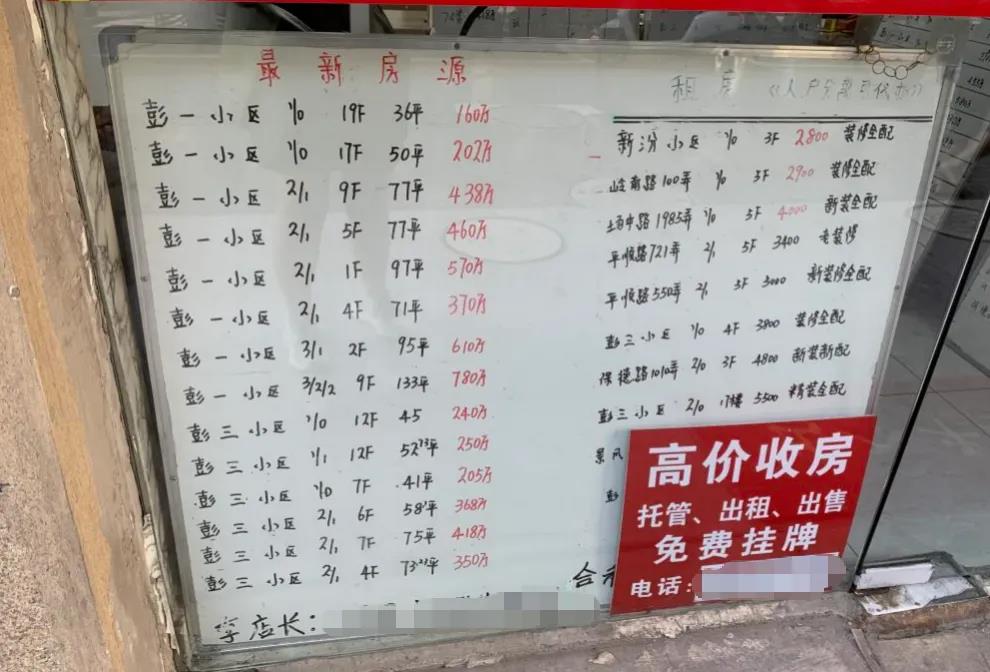 最新房源
彭一小区 1/0 19F 36平 160万
彭一小区 1/0 17F 50平 202万
彭一小区 2/1 9F 77平 438万
彭一小区 2/1 5F 77平 460万
彭一小区 2/1 1F 97平 570万
彭一小区 2/1 4F 71平 370万
彭一小区 3/1 2F 95平 610万
彭一小区 3/2/2 9F 133平 780万
彭三小区 1/0 12F 45 240万
彭三小区 1/1 12F 52.73平 250万
彭三小区 1/0 7F 41平 205万
彭三小区 2/1 6F 58平 368万
彭三小区 2/1 7F 75平 418万
彭三小区 2/1 4F 73平 350万
李店长:
租房《人户分离可代办》
新汾小区 1/0 3F 2800 装修全配
岭南路100弄 1/0 3F 2900 装修全配
场中路1985弄 1/0 3F 4000 新装全配
平顺路721弄 2/1 5F 3400 老装修
平顺路550弄 2/1 3F 3000 新装修全配
彭三小区 1/0 4F 3800 装修全配
保德路1010弄 2/0 3F 4800 新装新配
彭三小区 2/0 17楼 5500 精装全配
景风
彭
高价收房
托管、出租、出售
免费挂牌
电话: